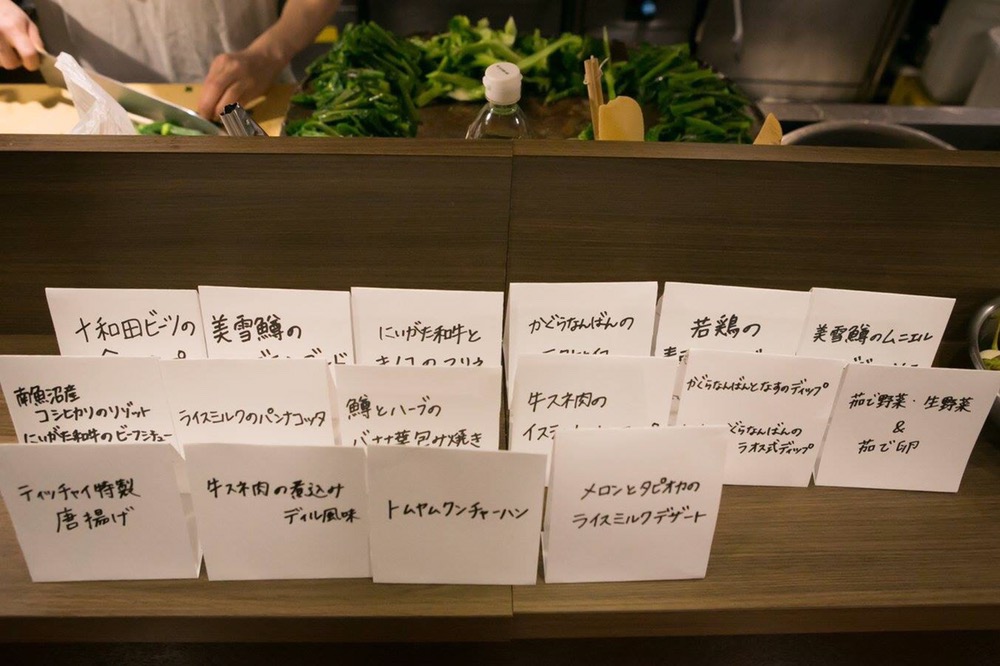 十和田ビーツの
美雪鱒の
にいがた和牛と
キノコのフリカ
かぐらなんばんの
若鶏の
美雪鱒のムニエル
南魚沼産
コシヒカリのリゾット
にいがた和牛のビーフシチュー
ライスミルクのパンナコッタ
鱒とハーブの
バナナ葉包み焼き
牛スネ肉の
かぐらなんばんとなすのディップ
ぐらなんばんの
ラオス式ディップ
茹で野菜・生野菜
&
茹で卵
ティッチャイ特製
唐揚げ
牛スネ肉の煮込み
ディル風味
トムヤムクンチャーハン
メロンとタピオカの
ライスミルクデザート